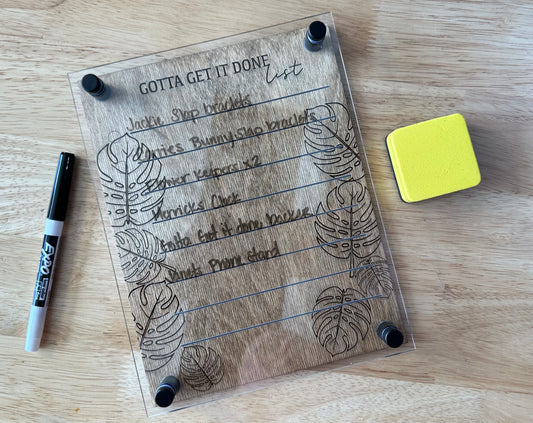 GOTTA GET IT DONE list
Jackie Slap braclets
Carries Bunny Slap braclets
Flower Keepers x2
Merricks Clock
Gotta Get it done backer
Janets Phone stand
EXPO